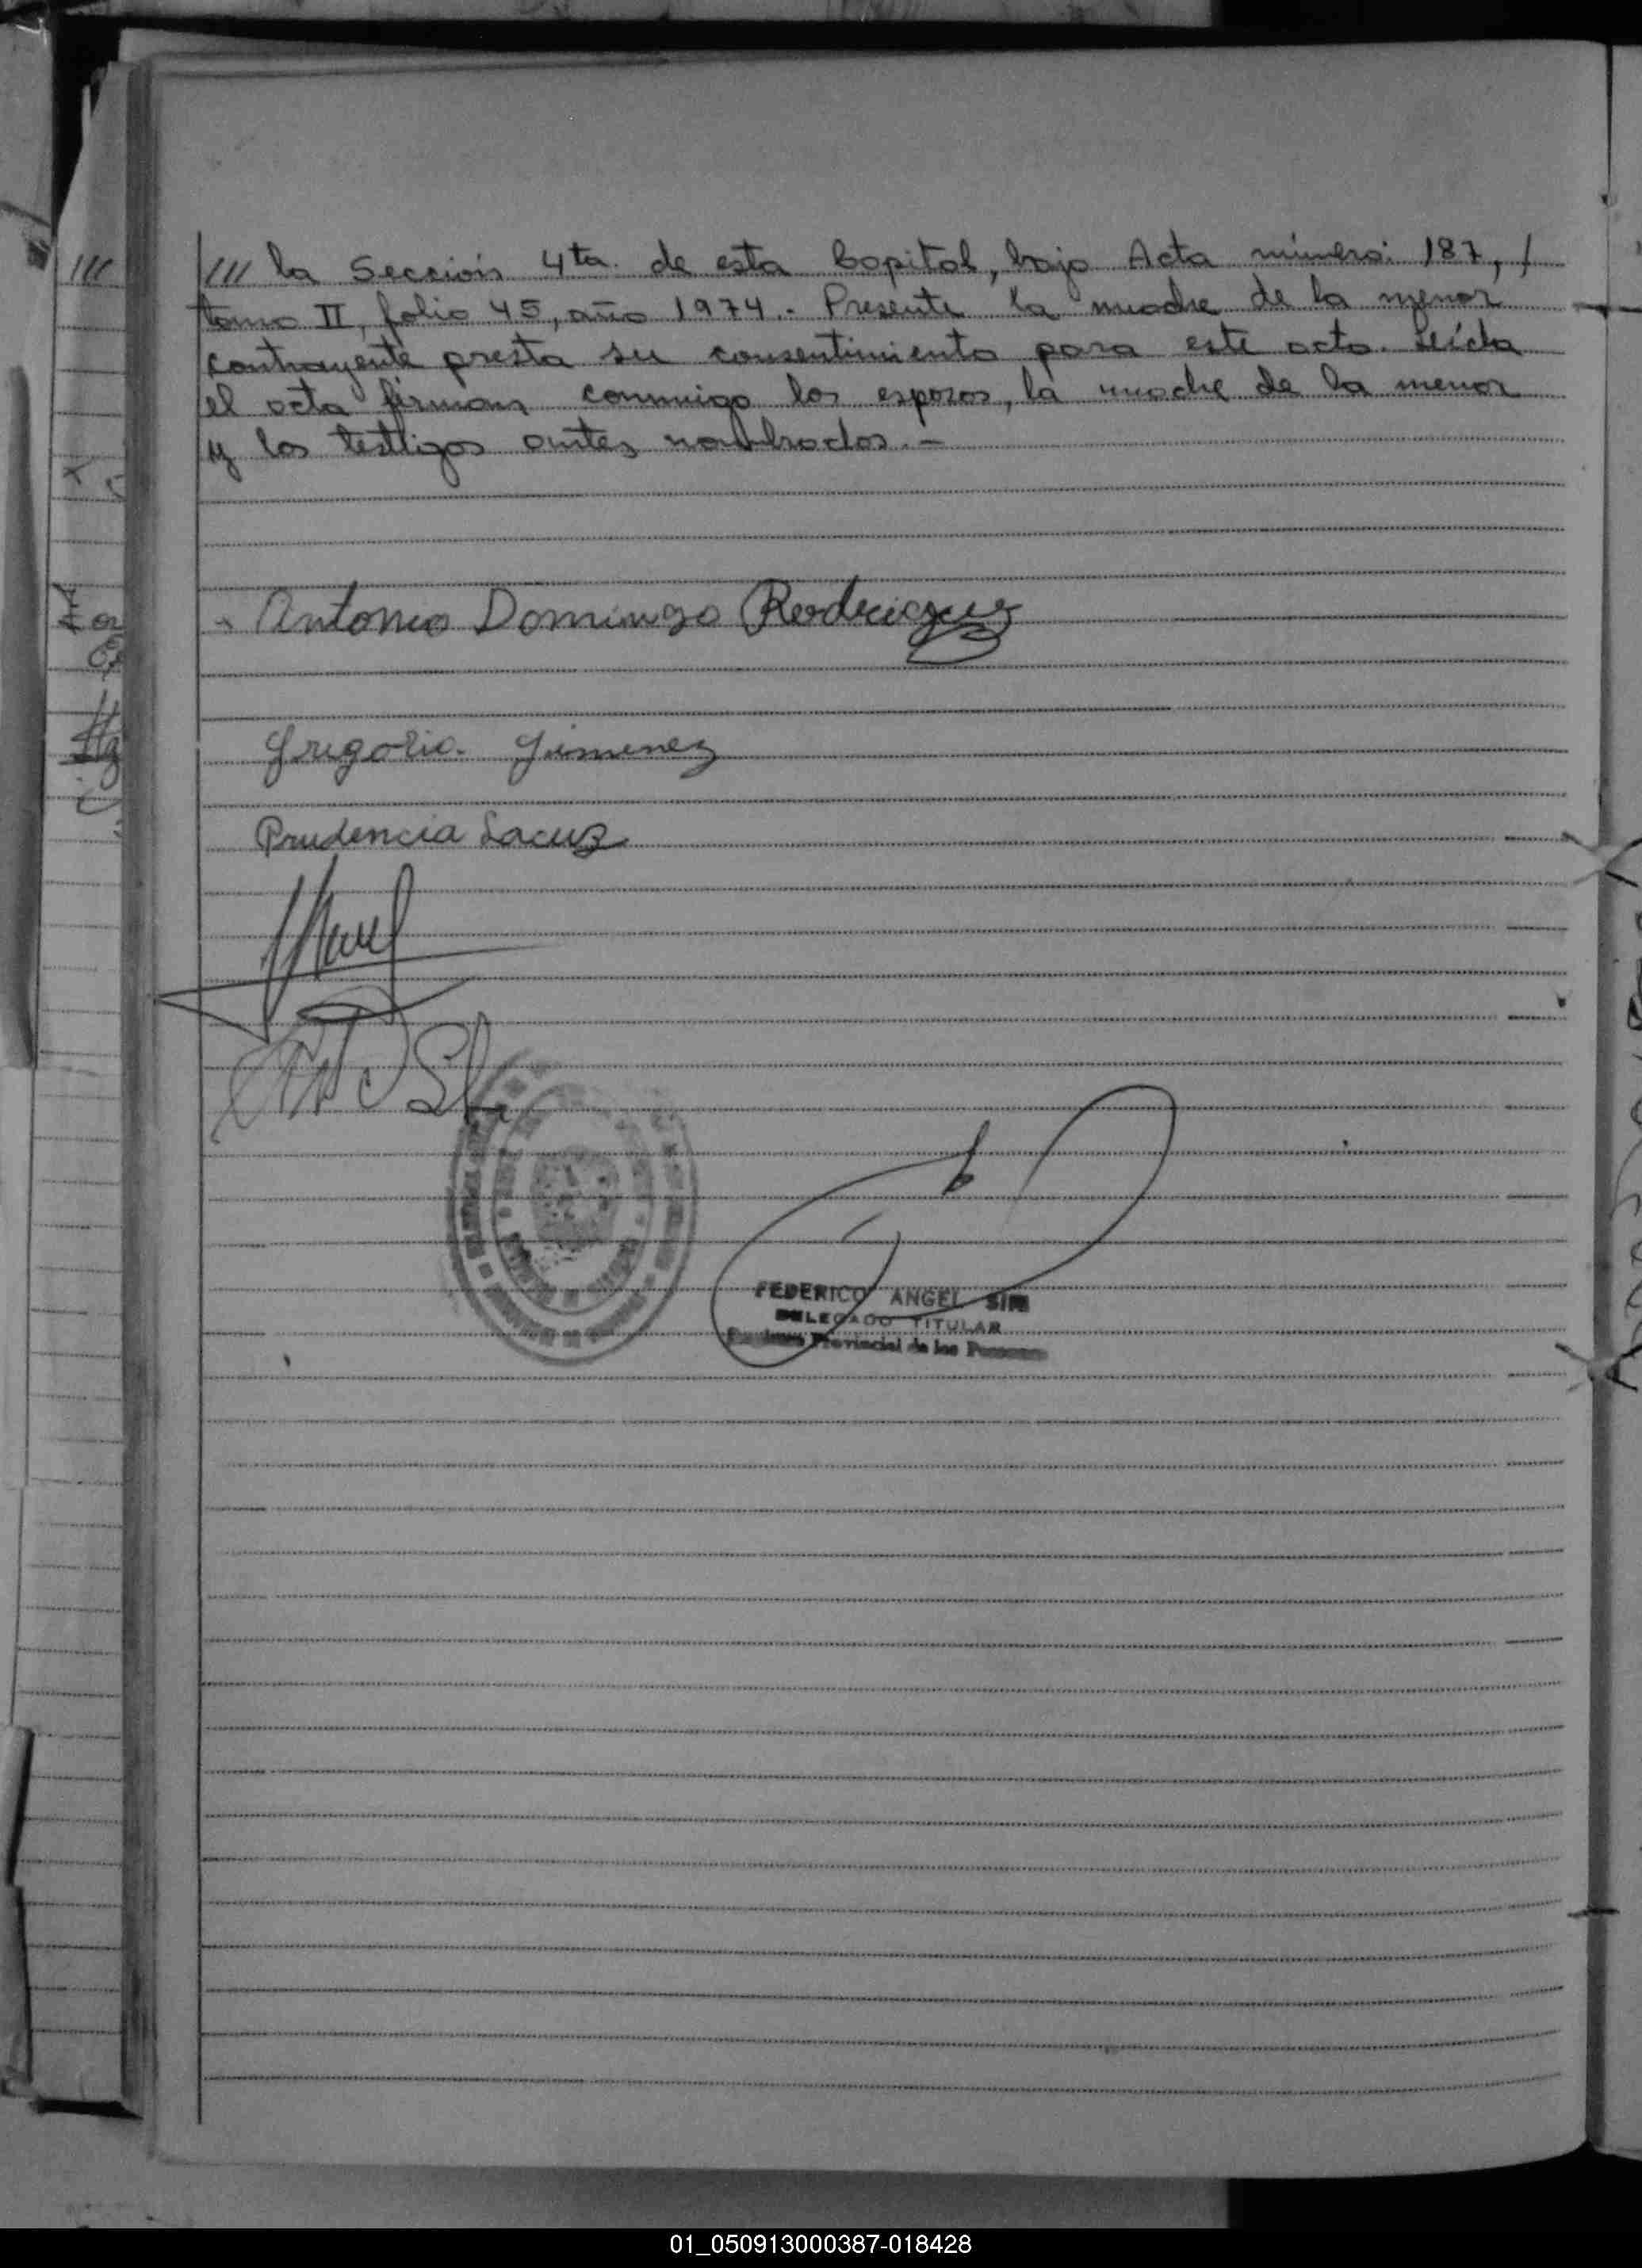 /// la Sección 4ta. de esta Capital, bajo Acta número: 187, /
tomo II, folio 45, año 1974.- Presente la madre de la menor
contrayente presta su consentimiento para este acto. Leída
el acta firman conmigo los esposos, la madre de la menor
y los testigos antes nombrados.-
Antonio Domingo Rodriguez
Gregoria Gimenez
Prudencia Lacuz
FEDERICO ANGEL SIRI
DELEGADO TITULAR
Provincial de las Personas
///
01_050913000387-018428